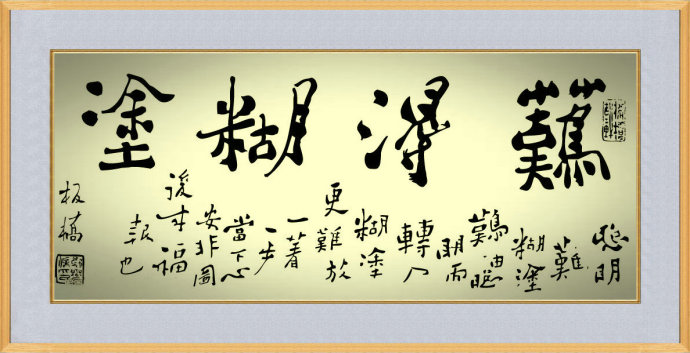 難得糊塗
聰明
難
糊塗
難由聰
明而
轉入
糊塗
更難放
一著
一步
當下心
安非圖
後来福
報也
板橋